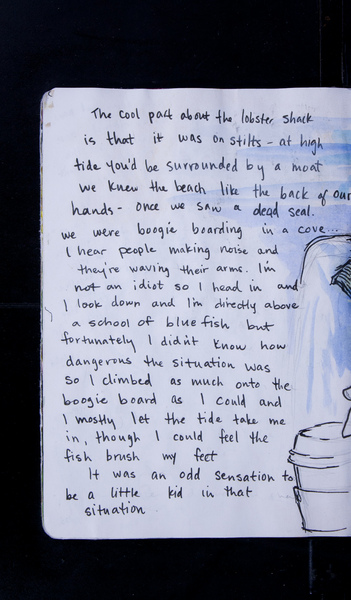 The cool part about the lobster shack
is that it was on stilts - at high
tide you'd be surrounded by a moat
we knew the beach like the back of our
hands - once we saw a dead seal.
we were boogie boarding in a cove...
I hear people making noise and
they're waving their arms. I'm
not an idiot so I head in and
I look down and I'm directly above
a school of blue fish but
fortunately I didn't know how
dangerous the situation was
so I climbed as much onto the
boogie board as I could and
I mostly let the tide take me
in, though I could feel the
fish brush my feet
It was an odd sensation to
be a little kid in that
situation